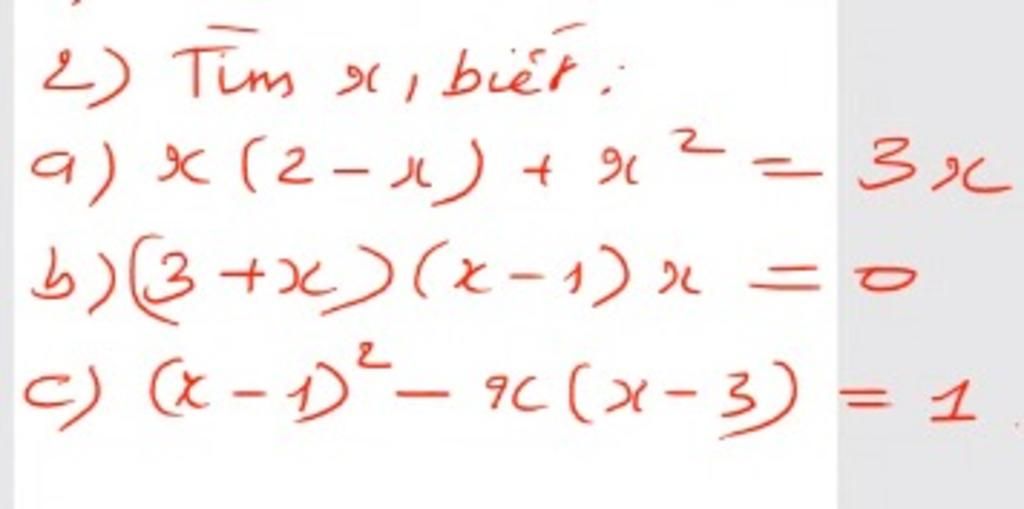 2) Tìm x, biết:
a) x(2-x) + x² = 3x
b) (3+x)(x-1)x = 0
c) (x-1)² - x(x-3) = 1.